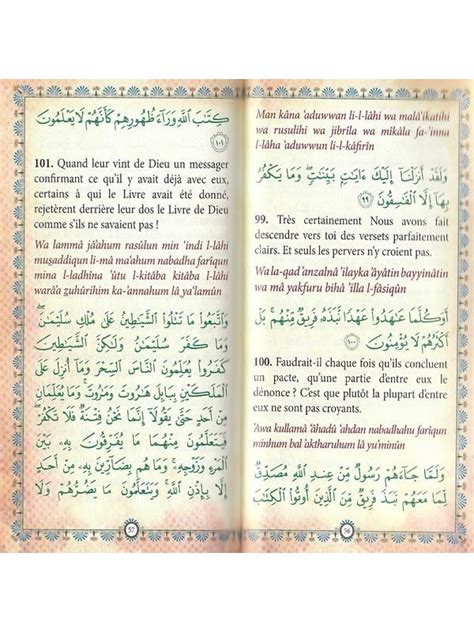 Man kâna 'aduwwan li-l-lâhi wa malâ'ikatihi
wa rusulihi wa jibrîla wa mîkâla fa-'inna
l-lâha 'aduwwun li-l-kâfirîn
وَلَقَدْ أَنزَلْنَآ إِلَيْكَ ءَايَٰتٍۭ بَيِّنَٰتٍ ۖ وَمَا يَكْفُرُ
بِهَآ إِلَّا ٱلْفَٰسِقُونَ ٩٩
99. Très certainement Nous avons fait
descendre vers toi des versets parfaitement
clairs. Et seuls les pervers n'y croient pas.
Wa la-qad 'anzalnâ 'ilayka 'âyâtin bayyinâtin
wa mâ yakfuru bihâ 'illa l-fâsiqûn
أَوَكُلَّمَا عَٰهَدُوا۟ عَهْدًا نَّبَذَهُۥ فَرِيقٌ مِّنْهُم ۚ بَلْ
أَكْثَرُهُمْ لَا يُؤْمِنُونَ ١٠٠
100. Faudrait-il chaque fois qu'ils concluent
un pacte, qu'une partie d'entre eux le
dénonce ? C'est que plutôt la plupart d'entre
eux ne sont pas croyants.
'Awa kullamâ 'âhadû 'ahdan nabadhahu farîqun
minhum bal 'aktharuhum lâ yu'minûn
وَلَمَّا جَآءَهُمْ رَسُولٌ مِّنْ عِندِ ٱللَّهِ مُصَدِّقٌ
لِّمَا مَعَهُمْ نَبَذَ فَرِيقٌ مِّنَ ٱلَّذِينَ أُوتُوا۟ ٱلْكِتَٰبَ
56
كِتَٰبَ ٱللَّهِ وَرَآءَ ظُهُورِهِمْ كَأَنَّهُمْ لَا يَعْلَمُونَ
١٠١
101. Quand leur vint de Dieu un messager
confirmant ce qu'il y avait déjà avec eux,
certains à qui le Livre avait été donné,
rejetèrent derrière leur dos le Livre de Dieu
comme s'ils ne savaient pas !
Wa lammâ jâ'ahum rasûlun min 'indi l-lâhi
muṣaddiqun li-mâ ma'ahum nabadha farîqun
mina l-ladhîna 'ûtu l-kitâba kitâba l-lâhi
warâ'a zuhûrihim ka-'annahum lâ ya'lamûn
وَٱتَّبَعُوا۟ مَا تَتْلُوا۟ ٱلشَّيَٰطِينُ عَلَىٰ مُلْكِ سُلَيْمَٰنَ ۖ
وَمَا كَفَرَ سُلَيْمَٰنُ وَلَٰكِنَّ ٱلشَّيَٰطِينَ
كَفَرُوا۟ يُعَلِّمُونَ ٱلنَّاسَ ٱلسِّحْرَ وَمَآ أُنزِلَ عَلَى
ٱلْمَلَكَيْنِ بِبَابِلَ هَٰرُوتَ وَمَٰرُوتَ ۚ وَمَا يُعَلِّمَانِ
مِنْ أَحَدٍ حَتَّىٰ يَقُولَآ إِنَّمَا نَحْنُ فِتْنَةٌ فَلَا تَكْفُرْ ۖ
فَيَتَعَلَّمُونَ مِنْهُمَا مَا يُفَرِّقُونَ بِهِۦ بَيْنَ
ٱلْمَرْءِ وَزَوْجِهِۦ ۚ وَمَا هُم بِضَآرِّينَ بِهِۦ مِنْ أَحَدٍ
إِلَّا بِإِذْنِ ٱللَّهِ ۚ وَيَتَعَلَّمُونَ مَا يَضُرُّهُمْ وَلَا
57